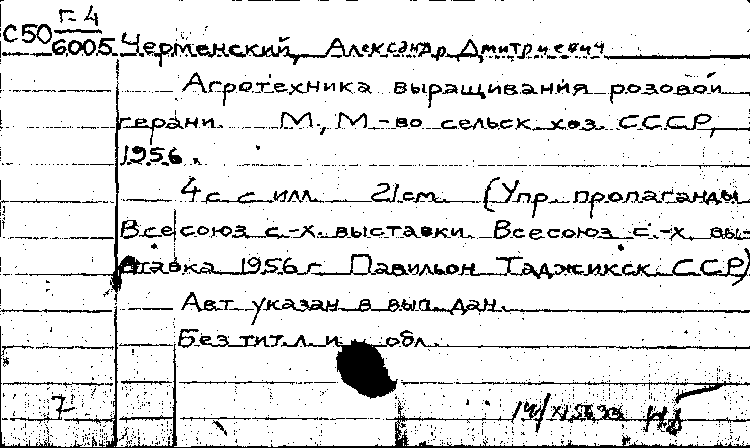 С50 г-4
6005 Черменский, Александр Дмитриевич
Агротехника выращивания розовой
герани. М., М-во сельск. хоз. СССР,
1956.
4 с. с илл. 21 см. (Упр. пропаганды
Всесоюз. с.-х. выставки. Всесоюз. с.-х. вы-
ставка 1956 г. Павильон Таджикск. ССР)
Авт. указан в вып. дан.
Без тит. л. и обл.
7